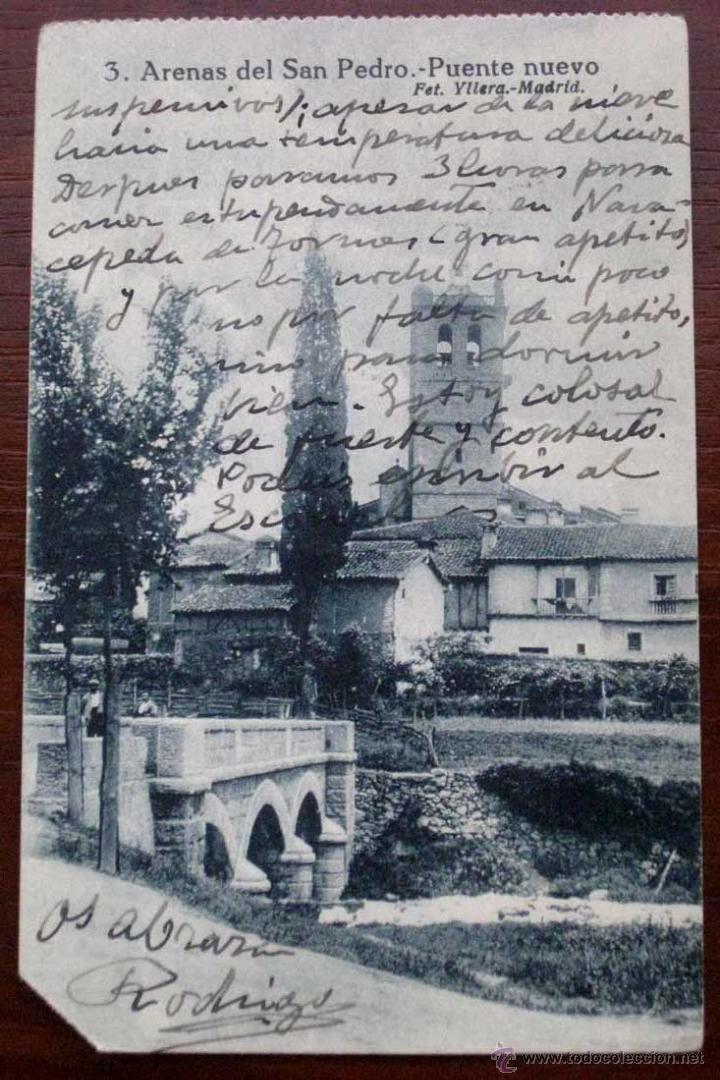 3. Arenas del San Pedro.-Puente nuevo
Fot. Yllera.-Madrid.
apesar de la nieve
hacia una temperatura deliciosa
Despues paramos 3 horas para
comer estupendamente en Nava-
cepeda de Tormes (gran apetito)
y por la noche comi poco
no por falta de apetito,
sino para dormir
bien. Estoy colosal
de fuerte y contento.
Podeis escribir al
Escorial
os abraza
Rodrigo
www.todocoleccion.net